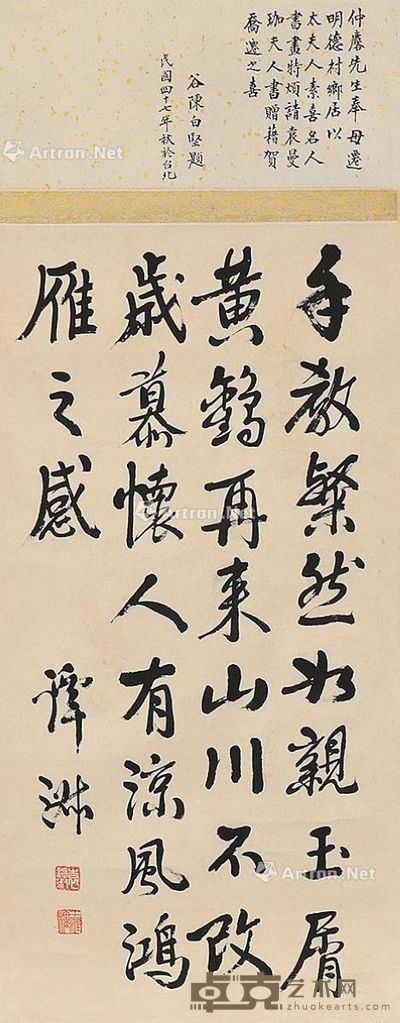 仲麐先生奉母遷
明德村鄉居以
太夫人素喜名人
書畫特煩請袁曼
珈夫人書贈藉賀
喬遷之喜
谷陳白堅題
民國四十七年秋於台北
手教粲然如親玉屑
黃鶴再來山川不改
歲慕懷人有涼風鴻
雁之感
Artron.Net
Artron.Net
Artron.Net
Artron.Net
Artron.Net
卓克艺术网
www.zhuokearts.com